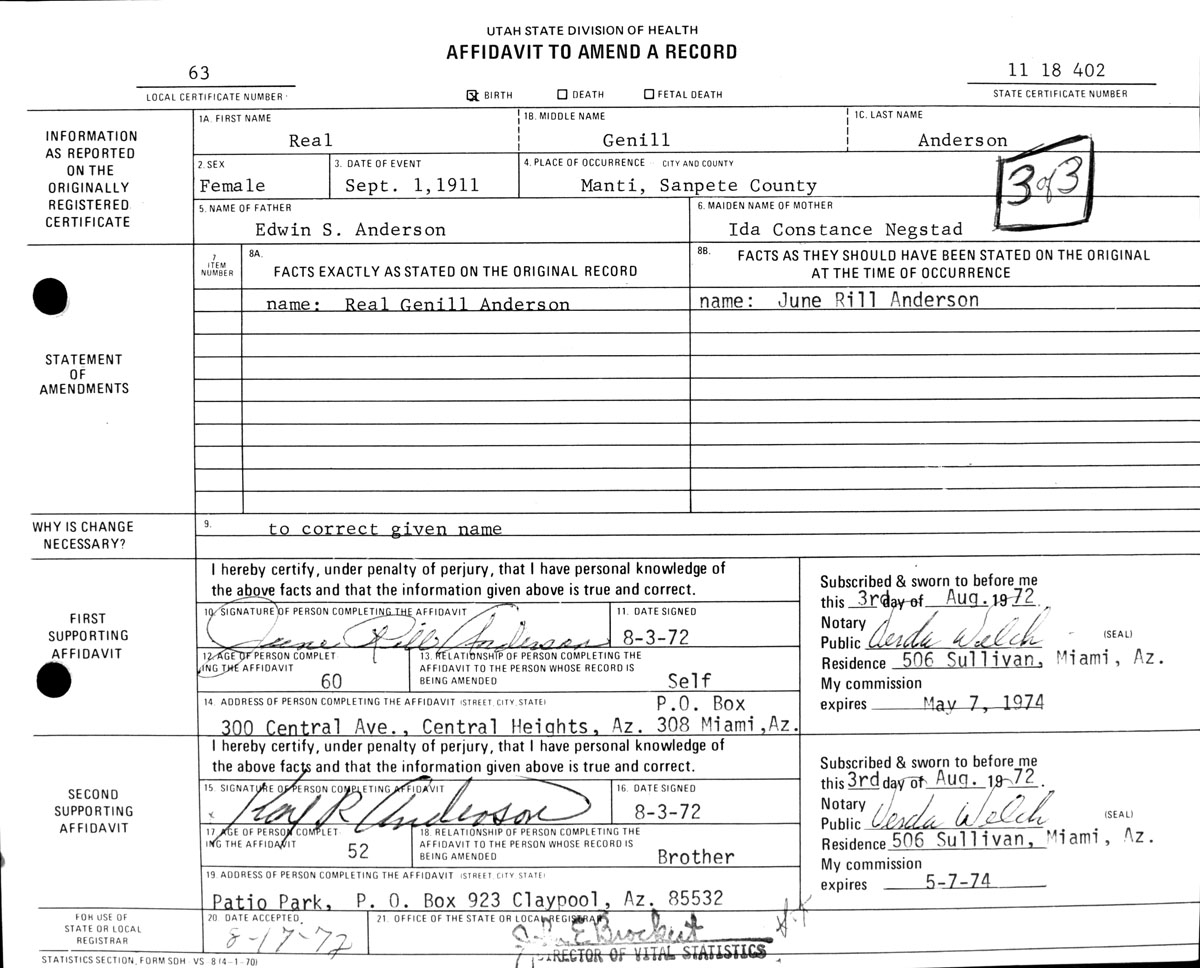 UTAH STATE DIVISION OF HEALTH
AFFIDAVIT TO AMEND A RECORD
63
LOCAL CERTIFICATE NUMBER
BIRTH DEATH FETAL DEATH
11 18 402
STATE CERTIFICATE NUMBER
INFORMATION
AS REPORTED
ON THE
ORIGINALLY
REGISTERED
CERTIFICATE
1A. FIRST NAME
Real
1B. MIDDLE NAME
Genill
1C. LAST NAME
Anderson
2. SEX
Female
3. DATE OF EVENT
Sept. 1,1911
4. PLACE OF OCCURRENCE CITY AND COUNTY
Manti, Sanpete County
3 of 3
5. NAME OF FATHER
Edwin S. Anderson
6. MAIDEN NAME OF MOTHER
Ida Constance Negstad
STATEMENT
OF
AMENDMENTS
7
ITEM
NUMBER
8A.
FACTS EXACTLY AS STATED ON THE ORIGINAL RECORD
8B. FACTS AS THEY SHOULD HAVE BEEN STATED ON THE ORIGINAL
AT THE TIME OF OCCURRENCE
name: Real Genill Anderson
name: June Rill Anderson
WHY IS CHANGE
NECESSARY?
9. to correct given name
FIRST
SUPPORTING
AFFIDAVIT
I hereby certify, under penalty of perjury, that I have personal knowledge of
the above facts and that the information given above is true and correct.
10. SIGNATURE OF PERSON COMPLETING THE AFFIDAVIT
June Rill Anderson
11. DATE SIGNED
8-3-72
12. AGE OF PERSON COMPLET
ING THE AFFIDAVIT
60
13. RELATIONSHIP OF PERSON COMPLETING THE
AFFIDAVIT TO THE PERSON WHOSE RECORD IS
BEING AMENDED
Self
14. ADDRESS OF PERSON COMPLETING THE AFFIDAVIT (STREET, CITY, STATE)
P.O. Box
300 Central Ave., Central Heights, Az. 308 Miami,Az.
Subscribed & sworn to before me
this 3rd day of Aug. 19 72
Notary
Public Verda Welch (SEAL)
Residence 506 Sullivan, Miami, Az.
My commission
expires May 7, 1974
SECOND
SUPPORTING
AFFIDAVIT
I hereby certify, under penalty of perjury, that I have personal knowledge of
the above facts and that the information given above is true and correct.
15. SIGNATURE OF PERSON COMPLETING AFFIDAVIT
Roy R Anderson
16. DATE SIGNED
8-3-72
17. AGE OF PERSON COMPLET
ING THE AFFIDAVIT
52
18. RELATIONSHIP OF PERSON COMPLETING THE
AFFIDAVIT TO THE PERSON WHOSE RECORD IS
BEING AMENDED
Brother
19. ADDRESS OF PERSON COMPLETING THE AFFIDAVIT (STREET, CITY, STATE)
Patio Park, P. O. Box 923 Claypool, Az. 85532
Subscribed & sworn to before me
this 3rd day of Aug. 19 72.
Notary
Public Verda Welch (SEAL)
Residence 506 Sullivan, Miami, Az.
My commission
expires 5-7-74
FOR USE OF
STATE OR LOCAL
REGISTRAR
20. DATE ACCEPTED
8-17-72
21. OFFICE OF THE STATE OR LOCAL REGISTRAR
E Brockert
DIRECTOR OF VITAL STATISTICS
STATISTICS SECTION, FORM SDH - VS 8 (4-1-70)